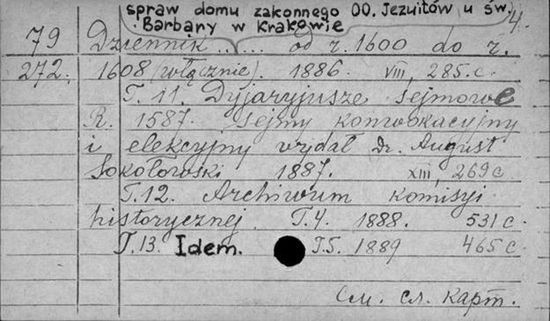 spraw domu zakonnego OO. Jezuitów u św.
Barbary w Krakowie 4.
79 Dziennik ....... od r. 1600 do r.
272. 1608 (włącznie). 1886. VIII, 285.c.
T. 11. Dyjaryjusze sejmowe
R. 1587. Sejmy konwokacyjny
i elekcyjny wydał Dr. August
Sokołowski 1887. XIII, 269 c
T. 12. Archiwum komisyi
historycznej. T.4. 1888. 531 c.
T. 13. Idem. T.5. 1889 465 c.
См. сл. карт.